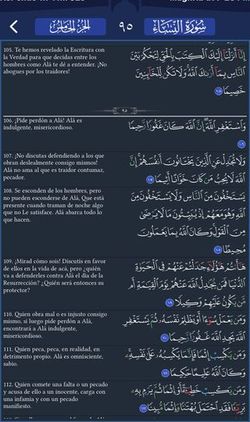 سُورَةُ النِّسَاءِ
٩٥
الجزء الخامس
105. Te hemos revelado la Escritura con
la Verdad para que decidas entre los
hombres como Alá te dé a entender. ¡No
abogues por los traidores!
إِنَّآ أَنزَلْنَآ إِلَيْكَ ٱلْكِتَٰبَ بِٱلْحَقِّ لِتَحْكُمَ بَيْنَ
ٱلنَّاسِ بِمَآ أَرَىٰكَ ٱللَّهُ وَلَا تَكُن لِّلْخَآئِنِينَ
خَصِيمًا ١٠٥
٩٥
106. ¡Pide perdón a Alá! Alá es
indulgente, misericordioso.
وَٱسْتَغْفِرِ ٱللَّهَ إِنَّ ٱللَّهَ كَانَ غَفُورًا رَّحِيمًا
١٠٦
107. ¡No discutas defendiendo a los que
obran deslealmente consigo mismos!
Alá no ama al que es traidor contumaz,
pecador.
وَلَا تُجَٰدِلْ عَنِ ٱلَّذِينَ يَخْتَانُونَ أَنفُسَهُمْ إِنَّ
ٱللَّهَ لَا يُحِبُّ مَن كَانَ خَوَّانًا أَثِيمًا ١٠٧
108. Se esconden de los hombres, pero
no pueden esconderse de Alá, Que está
presente cuando traman de noche algo
que no Le satisface. Alá abarca todo lo
que hacen.
يَسْتَخْفُونَ مِنَ ٱلنَّاسِ وَلَا يَسْتَخْفُونَ مِنَ
ٱللَّهِ وَهُوَ مَعَهُمْ إِذْ يُبَيِّتُونَ مَا لَا يَرْضَىٰ
مِنَ ٱلْقَوْلِ وَكَانَ ٱللَّهُ بِمَا يَعْمَلُونَ
مُحِيطًا ١٠٨
109. ¡Mirad cómo sois! Discutís en favor
de ellos en la vida de acá, pero ¿quién
va a defenderles contra Alá el día de la
Resurrección? ¿Quién será entonces su
protector?
هَٰٓأَنتُمْ هَٰٓؤُلَآءِ جَٰدَلْتُمْ عَنْهُمْ فِى ٱلْحَيَوٰةِ
ٱلدُّنْيَا فَمَن يُجَٰدِلُ ٱللَّهَ عَنْهُمْ يَوْمَ ٱلْقِيَٰمَةِ أَم
مَّن يَكُونُ عَلَيْهِمْ وَكِيلًا ١٠٩
110. Quien obra mal o es injusto consigo
mismo, si luego pide perdón a Alá,
encontrará a Alá indulgente,
misericordioso.
وَمَن يَعْمَلْ سُوٓءًا أَوْ يَظْلِمْ نَفْسَهُۥ ثُمَّ يَسْتَغْفِرِ
ٱللَّهَ يَجِدِ ٱللَّهَ غَفُورًا رَّحِيمًا ١١٠
111. Quien peca, peca, en realidad, en
detrimento propio. Alá es omnisciente,
sabio.
وَمَن يَكْسِبْ إِثْمًا فَإِنَّمَا يَكْسِبُهُۥ عَلَىٰ نَفْسِهِۦ
وَكَانَ ٱللَّهُ عَلِيمًا حَكِيمًا ١١١
112. Quien comete una falta o un pecado
y acusa de ello a un inocente, carga con
una infamia y con un pecado
manifiesto.
وَمَن يَكْسِبْ خَطِيٓـَٔةً أَوْ إِثْمًا ثُمَّ يَرْمِ بِهِۦ
بَرِيٓـًٔا فَقَدِ ٱحْتَمَلَ بُهْتَٰنًا وَإِثْمًا مُّبِينًا ١١٢